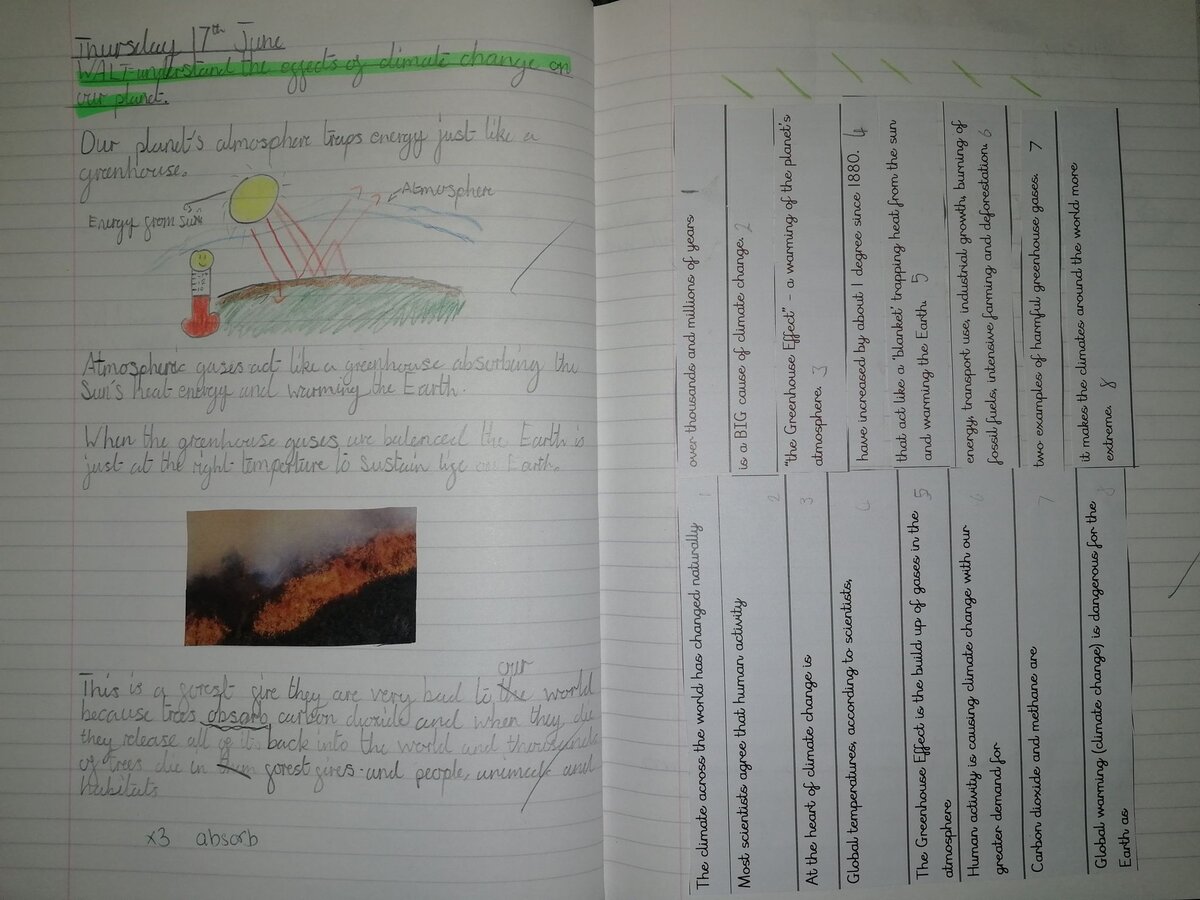 Thursday 17th June
WALT understand the effects of climate change on
our planet.
Our planet's atmosphere traps energy just like a
greenhouse.
Energy from sun
Atmosphere
Atmospheric gases act like a greenhouse absorbing the
Sun's heat energy and warming the Earth.
When the greenhouse gases are balenced the Earth is
just at the right temperture to sustain life on Earth.
our
This is a forest fire they are very bad to the world
because trees obsorb carbon dioxide and when they die
they release all of it back into the world and thousands
of trees die in them forest fires and people, animals and
habitats
x3 absorb
The climate across the world has changed naturally 1
over thousands and millions of years 1
Most scientists agree that human activity 2
is a BIG cause of climate change. 2
At the heart of climate change is 3
"the Greenhouse Effect" - a warming of the planet's
atmosphere. 3
Global temperatures, according to scientists, 4
have increased by about 1 degree since 1880. 4
The Greenhouse Effect is the build up of gases in the 5
atmosphere
that act like a 'blanket' trapping heat from the sun
and warming the Earth. 5
Human activity is causing climate change with our 6
greater demand for
energy, transport use, industrial growth, burning of
fossil fuels, intensive farming and deforestation. 6
Carbon dioxide and methane are 7
two examples of harmful greenhouse gases. 7
Global warming (climate change) is dangerous for the 8
Earth as
it makes the climates around the world more
extreme. 8